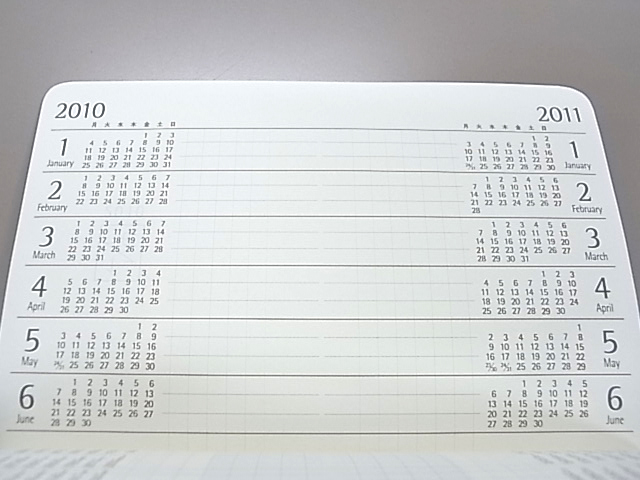 2010
月 火 水 木 金 土 日
1 January
1 2 3
4 5 6 7 8 9 10
11 12 13 14 15 16 17
18 19 20 21 22 23 24
25 26 27 28 29 30 31
2 February
1 2 3 4 5 6 7
8 9 10 11 12 13 14
15 16 17 18 19 20 21
22 23 24 25 26 27 28
3 March
1 2 3 4 5 6 7
8 9 10 11 12 13 14
15 16 17 18 19 20 21
22 23 24 25 26 27 28
29 30 31
4 April
1 2 3 4
5 6 7 8 9 10 11
12 13 14 15 16 17 18
19 20 21 22 23 24 25
26 27 28 29 30
5 May
1 2
3 4 5 6 7 8 9
10 11 12 13 14 15 16
17 18 19 20 21 22 23
24/31 25 26 27 28 29 30
6 June
1 2 3 4 5 6
7 8 9 10 11 12 13
14 15 16 17 18 19 20
21 22 23 24 25 26 27
28 29 30
2011
月 火 水 木 金 土 日
1 January
1 2
3 4 5 6 7 8 9
10 11 12 13 14 15 16
17 18 19 20 21 22 23
24/31 25 26 27 28 29 30
2 February
1 2 3 4 5 6
7 8 9 10 11 12 13
14 15 16 17 18 19 20
21 22 23 24 25 26 27
28
3 March
1 2 3 4 5 6
7 8 9 10 11 12 13
14 15 16 17 18 19 20
21 22 23 24 25 26 27
28 29 30 31
4 April
1 2 3
4 5 6 7 8 9 10
11 12 13 14 15 16 17
18 19 20 21 22 23 24
25 26 27 28 29 30
5 May
1
2 3 4 5 6 7 8
9 10 11 12 13 14 15
16 17 18 19 20 21 22
23/30 24/31 25 26 27 28 29
6 June
1 2 3 4 5
6 7 8 9 10 11 12
13 14 15 16 17 18 19
20 21 22 23 24 25 26
27 28 29 30